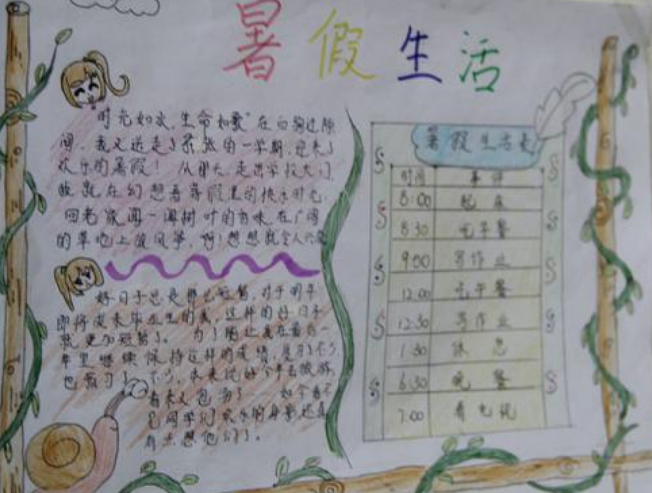 暑假生活
"时光如水,生命如歌"在白驹过隙
间,我又送走了紧张的一学期,迎来了
欢乐的暑假! 从那天走出学校大门,
就在幻想着暑假里的快乐时光,
回老家闻一闻树叶的香味,在广阔
的草地上放风筝,啊!想想就令人兴奋
好日子总是那么短暂,对于明年
即将成来毕业生的我,这样的好日子
就更加短暂了。为了能让我在最后一
年里继续保持这样的成绩,
也
看来又包
同学们欢乐的身影还是
有点想他们了。
暑假生活表
时间 事件
8:00 起床
8:30 吃早餐
9:00 写作业
12:00 吃午餐
12:30 写作业
1:30 休息
6:30 晚餐
7:00 看电视